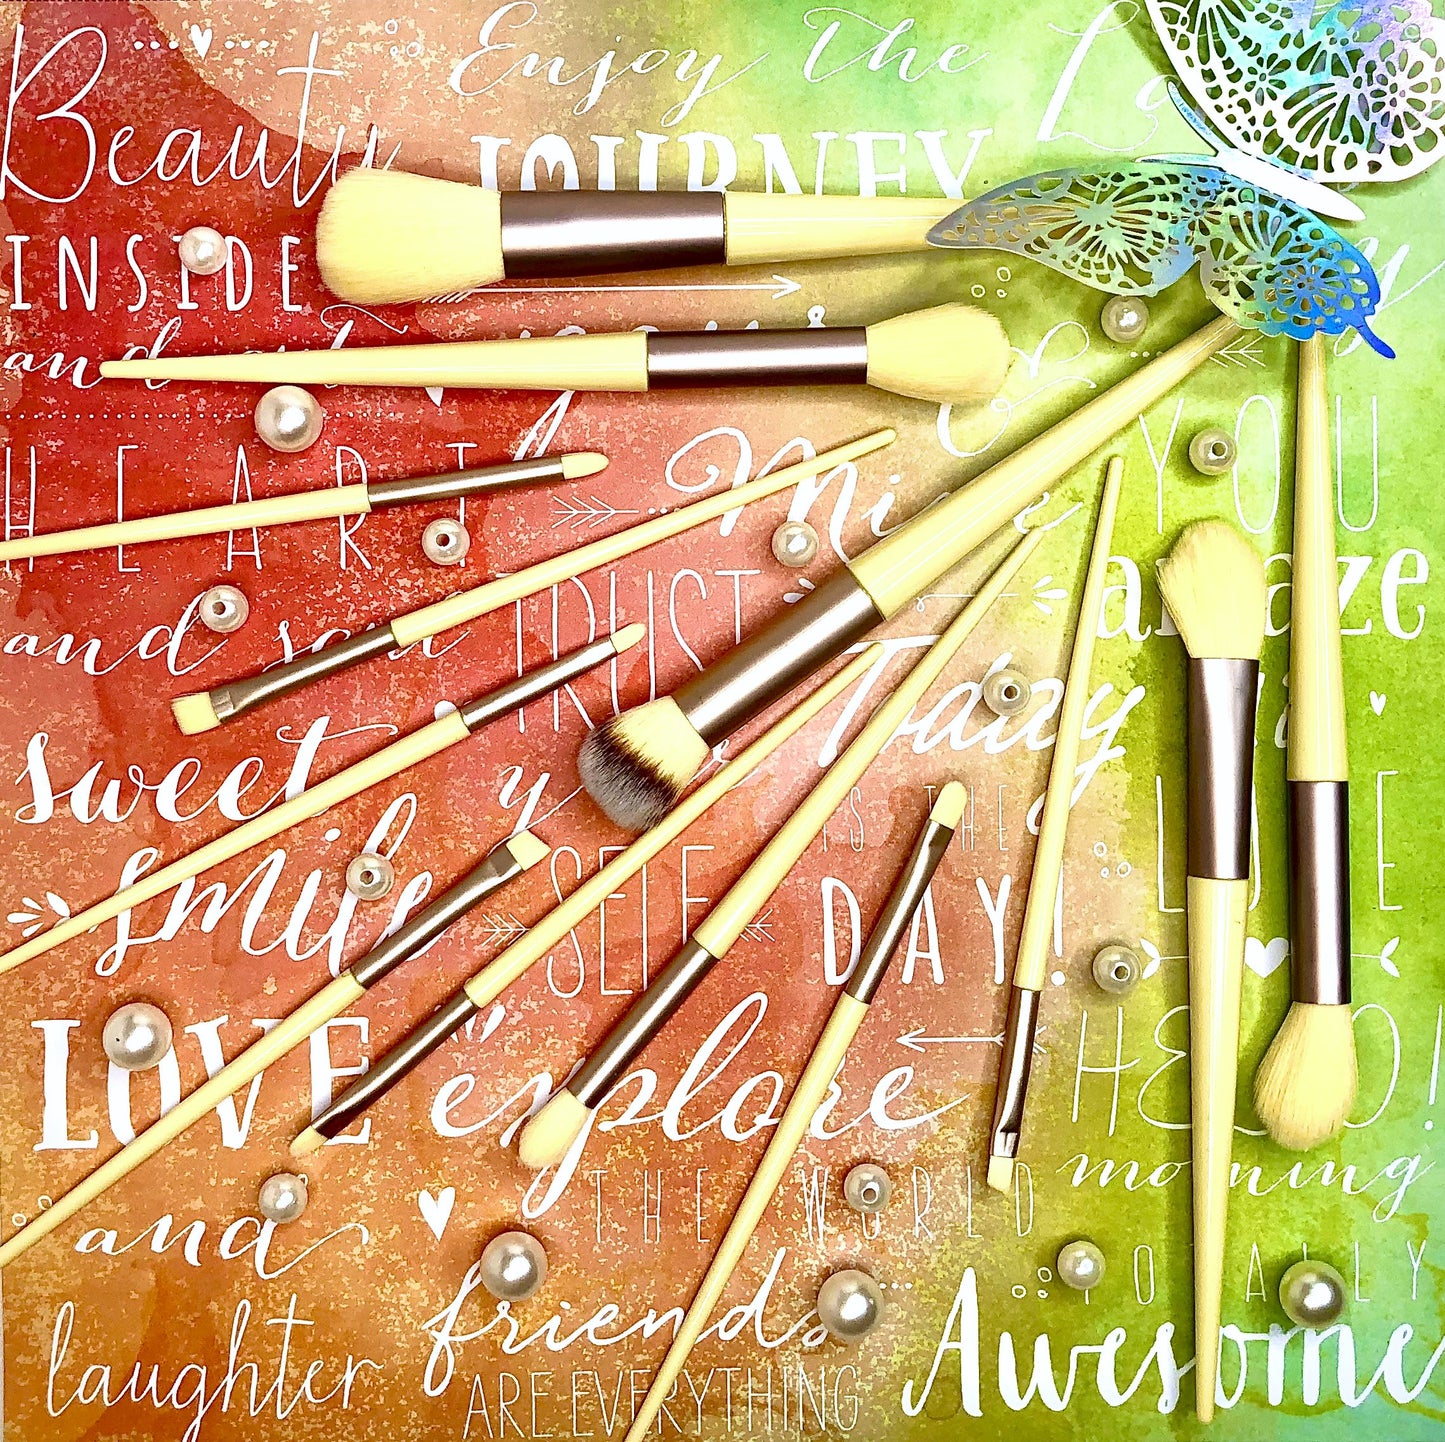 Beauty
INSIDE
and out
HEART
and soul
sweet
smile
LOVE
and
laughter
Enjoy the
JOURNEY
TRUST
SELF
explore
THE WORLD
friends
ARE EVERYTHING
Today
IS THE
DAY!
YOU
amaze
LOVE
HELLO!
morning
TOTALLY
Awesome